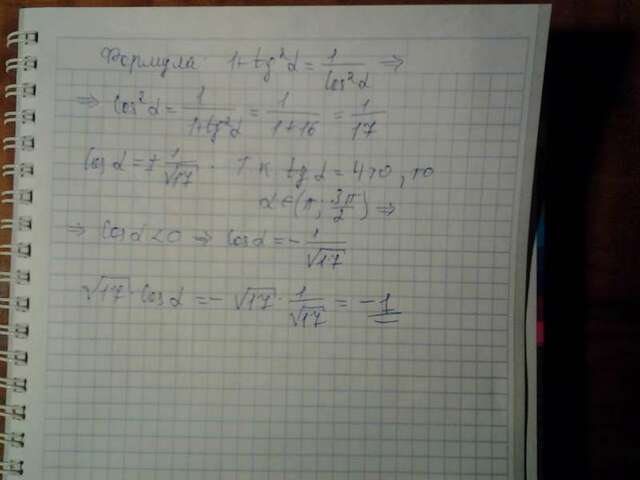 Формула: 1+tg²α = 1/cos²α ⇒
⇒ cos²α = 1/(1+tg²α) = 1/(1+16) = 1/17
cos α = ± 1/√17 . Т к tg α = 4>0, то
α ∈ (π; 3π/2) ⇒
⇒ cos α < 0 ⇒ cos α = - 1/√17
√17 · cos α = - √17 · 1/√17 = -1